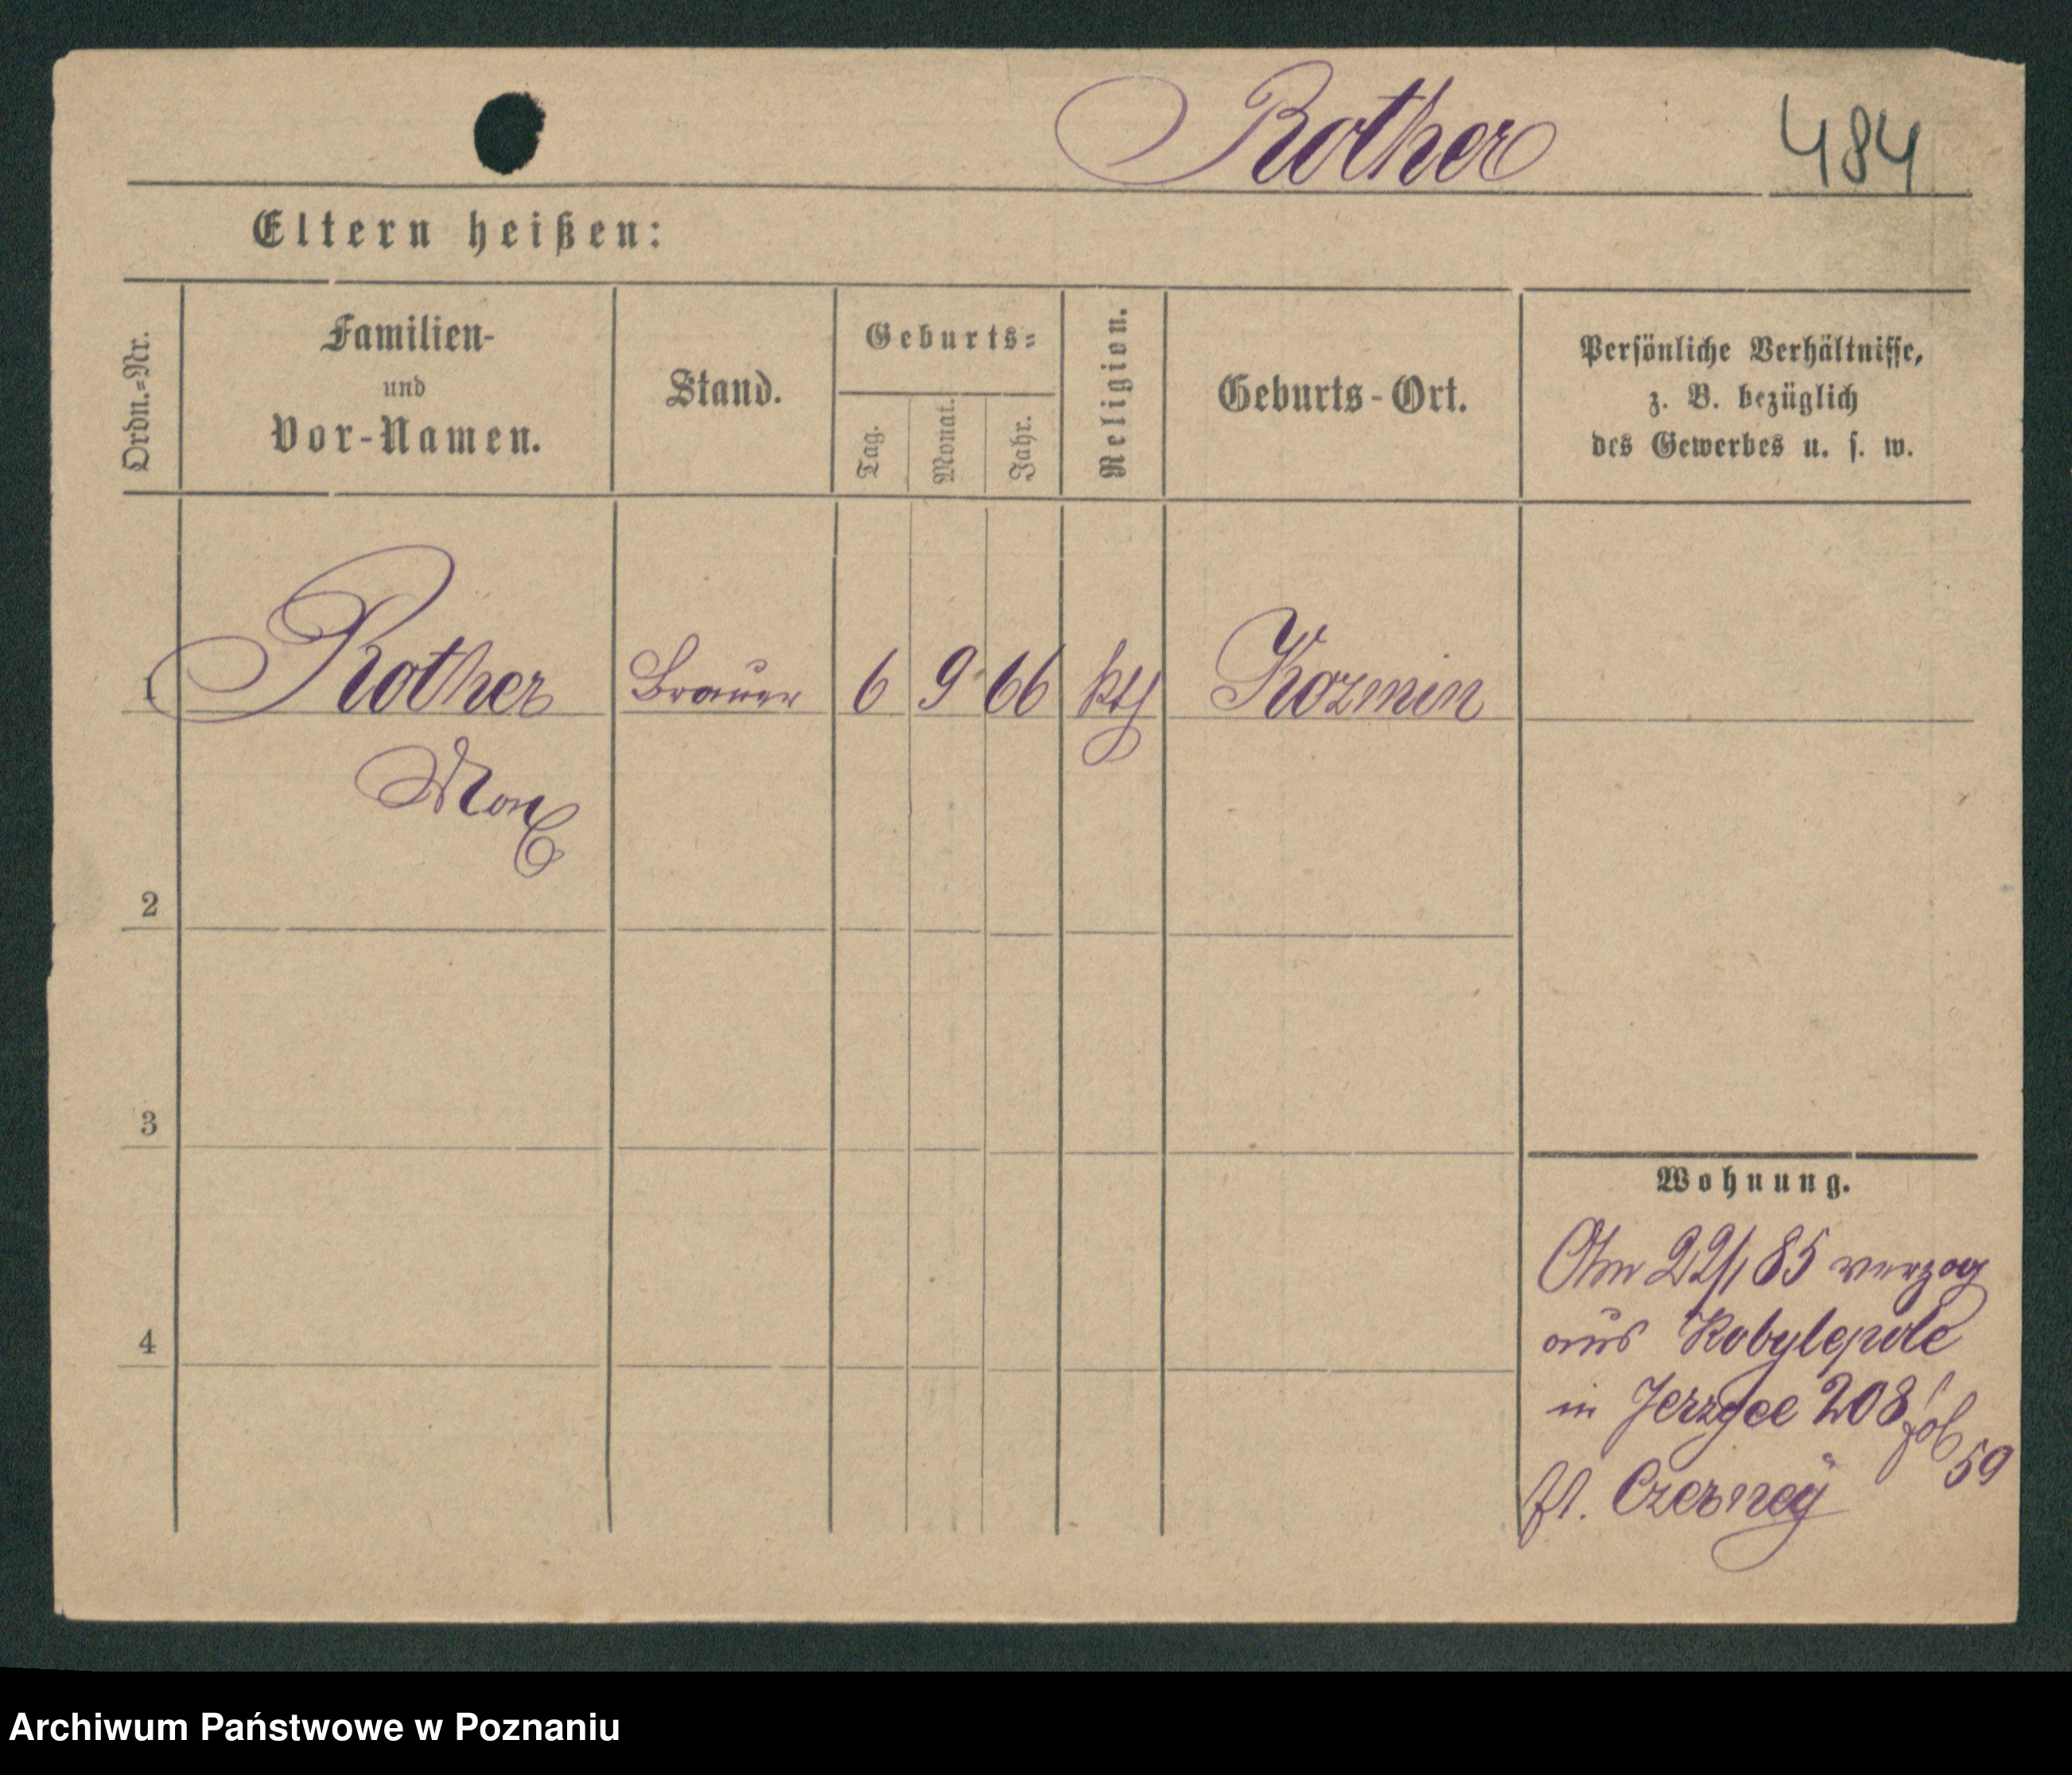 Rother 484
Eltern heißen:
Ordn.=Nr.
Familien-
und
Vor-Namen.
Stand.
Geburts=
Tag.
Monat.
Jahr.
Religion.
Geburts-Ort.
Persönliche Verhältnisse,
z. B. bezüglich
des Gewerbes u. s. w.
1 Rother Brauer 6 9 66 kth Kozmin
Max
2
3
4
Wohnung.
Am 22/1 85 verzog
aus Kobylepole
in Jerzyce 208
59
Czerney
Archiwum Państwowe w Poznaniu